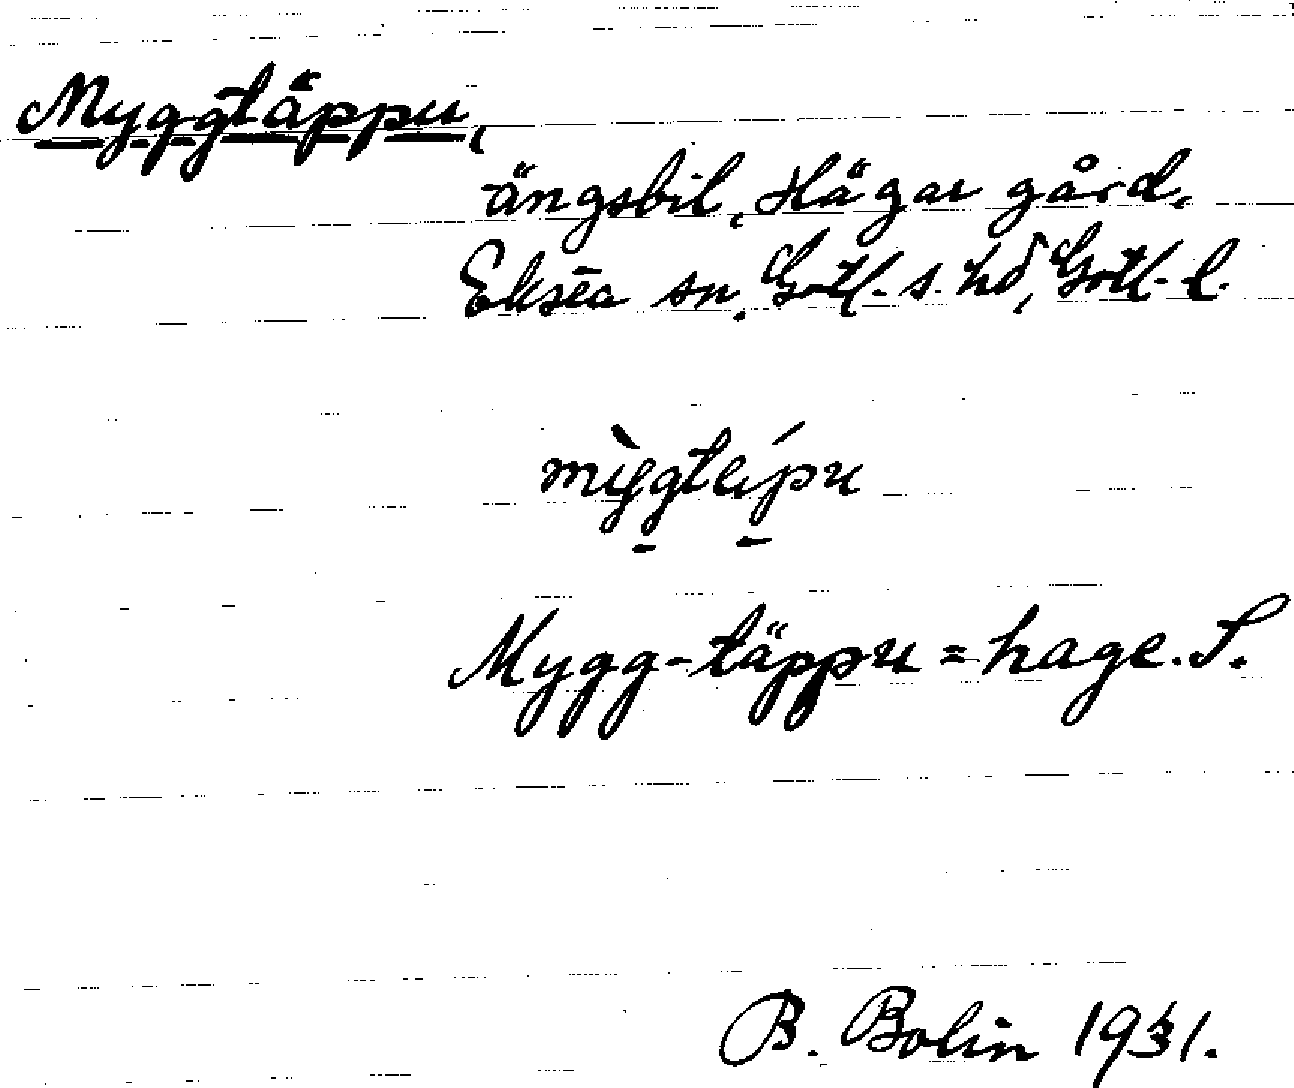 Myggtäppu,
ängsbil, Hägar gård,
Eksta sn, Gotl. s. hd, Gotl. l.
Mygg-täppu = hage. S.
B. Bolin 1931.